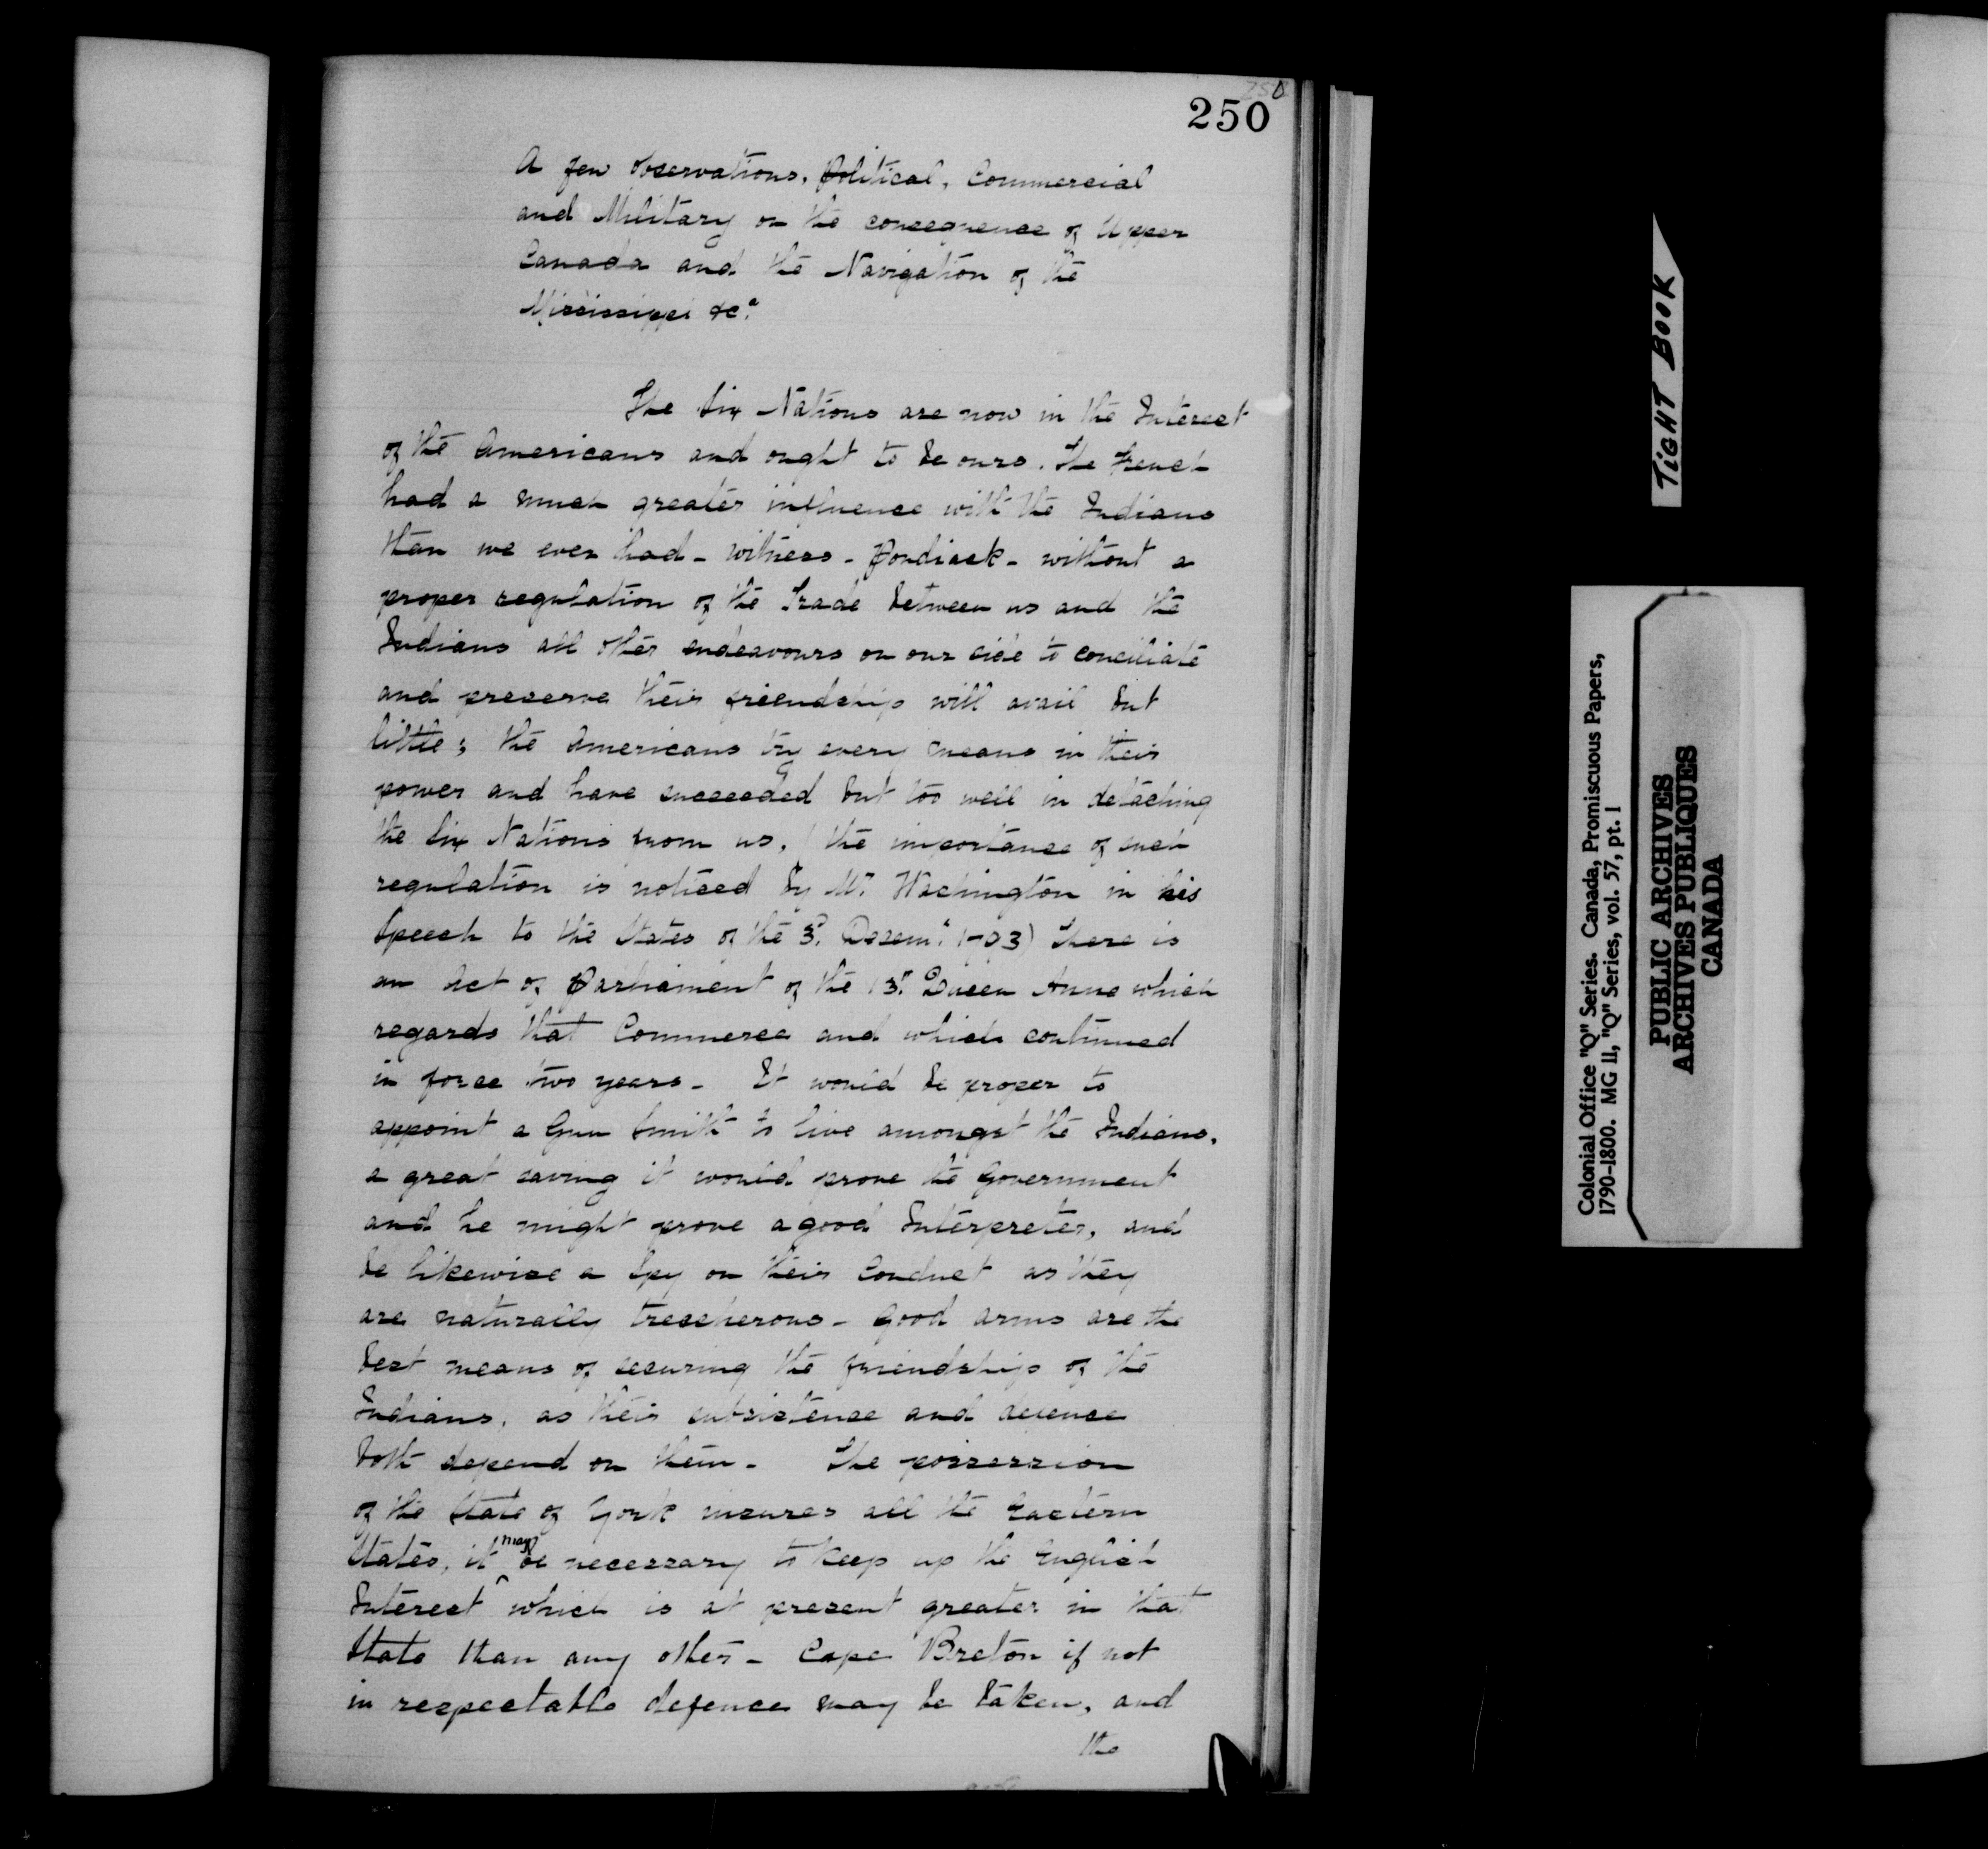 250
250
A few Observations, Political, Commercial
and Military on the consequence of Upper
Canada and the Navigation of the
Mississippi &cª.
The Six Nations are now in the Interest
of the Americans and ought to be ours. The French
had a much greater influence with the Indians
than we ever had - witness - Pondiack - without a
proper regulation of the Trade between us and the
Indians all other endeavours on our side to conciliate
and preserve their friendship will avail but
little; the Americans try every means in their
power and have succeeded but too well in detaching
the Six Nations from us, (the importance of such
regulation is noticed by Mr. Washington in his
Speech to the States of the 3d. Decemr. 1793) There is
an Act of Parliament of the 13th. Queen Anne which
regards that Commerce and which continued
in force two years - It would be proper to
appoint a Gun Smith to live amongst the Indians,
a great saving it would prove to Government
and he might prove a good Interpreter, and
be likewise a Spy on their Conduct as they
are naturally treacherous - Good arms are the
best means of securing the friendship of the
Indians, as their subsistence and defence
both depend on them - The possession
of the State of York insures all the Eastern
States, it may be necessary to keep up the English
Interest which is at present greater in that
State than any other - Cape Breton if not
in respectable defence may be taken, and
the
TIGHT BOOK
Colonial Office "Q" Series. Canada, Promiscuous Papers,
1790-1800. MG 11, "Q" Series, vol. 57, pt. 1
PUBLIC ARCHIVES
ARCHIVES PUBLIQUES
CANADA